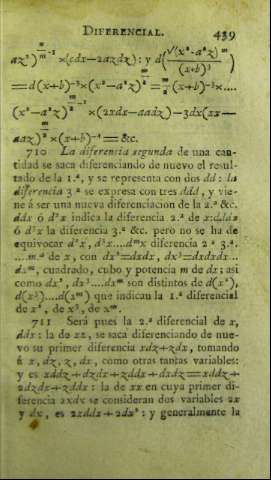 DIFERENCIAL. 439
az²)^{m/2 - 1} ×(cdx—2azdz): y d(√(x²-a²z)^m / (x+b)³)
=d(x+b)^{-3}×(x²-a²z)^{m/2}=m/2(x+b)^{-3}×....
(x²-a²z)^{m/2 - 1}×(2xdx—aadz)—3dx(xx—
aaz)^{m/2}×(x+b)^{-4}= &c.
710 La diferencia segunda de una can-
tidad se saca diferenciando de nuevo el resul-
tado de la 1.ª, y se representa con dos dd: la
diferencia 3.ª se expresa con tres ddd, y vie-
ne á ser una nueva diferenciacion de la 2.ª &c.
ddx ó d²x indica la diferencia 2.ª de x: dddx
ó d³x la diferencia 3.ª &c. pero no se ha de
equivocar d²x, d³x....d^m x diferencia 2.ª 3.ª.
....m.ª de x, con dx²=dxdx, dx³=dxdxdx...
dx^m, cuadrado, cubo y potencia m de dx; asi
como dx², dx³....dx^m son distintos de d(x²),
d(x³)....d(x^m) que indican la 1.ª diferencial
de x², de x³, de x^m.
711 Será pues la 2.ª diferencial de x,
ddx: la de xz, se saca diferenciando de nue-
vo su primer diferencia xdz+zdx, tomando
á x, dz, z, dx, como otras tantas variables:
y es xddz+dzdx+zddx+dxdz=xddz+
2dzdx+zddx: la de xx en cuya primer di-
ferencia 2xdx se consideran dos variables 2x
y dx, es 2xddx+2dx²: y generalmente la